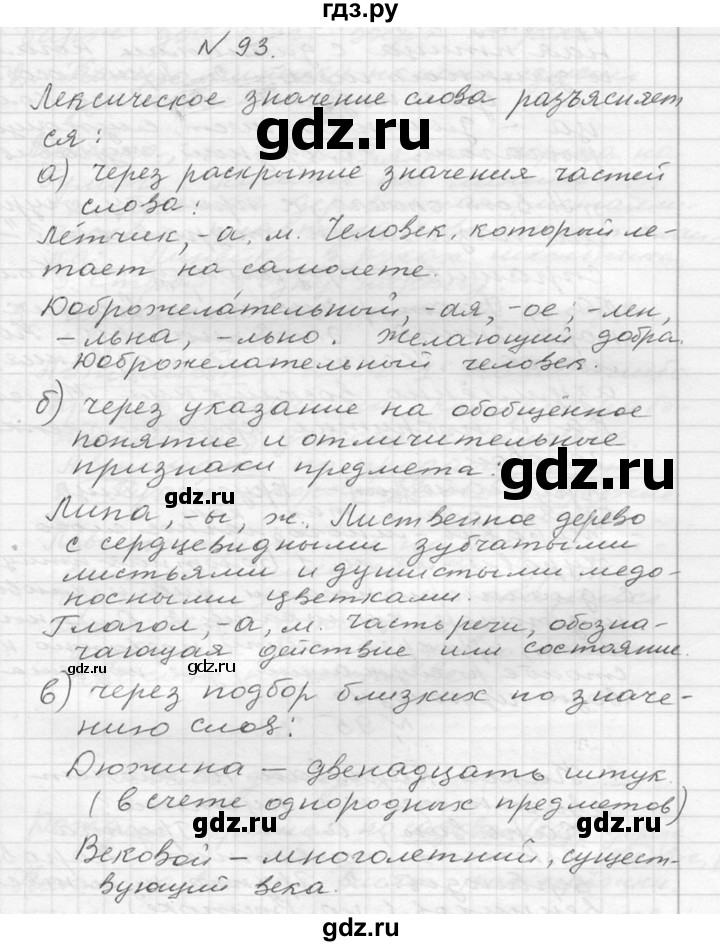 гдз.ру
№ 93.
Лексическое значение слова разъясняет-
ся:
а) через раскрытие значения частей
слова:
Лётчик, -а, м. Человек, который ле-
тает на самолете.
Доброжела́тельный, -ая, -ое; -лен,
-льна, -льно. Желающий добра.
Доброжелательный человек.
б) через указание на обобщённое
понятие и отличительные
признаки предмета:
Липа, -ы, ж. Лиственное дерево
с сердцевидными зубчатыми
листьями и душистыми медо-
носными цветками.
Глагол, -а, м. Часть речи, обозна-
чающая действие или состояние.
в) через подбор близких по значе-
нию слов:
Дюжина – двенадцать штук
(в счете однородных предметов)
Вековой – многолетний, сущест-
вующий века.
gdz.ru
gdz.ru
gdz.ru
gdz.ru
gdz.ru
gdz.ru
gdz.ru
gdz.ru
gdz.ru